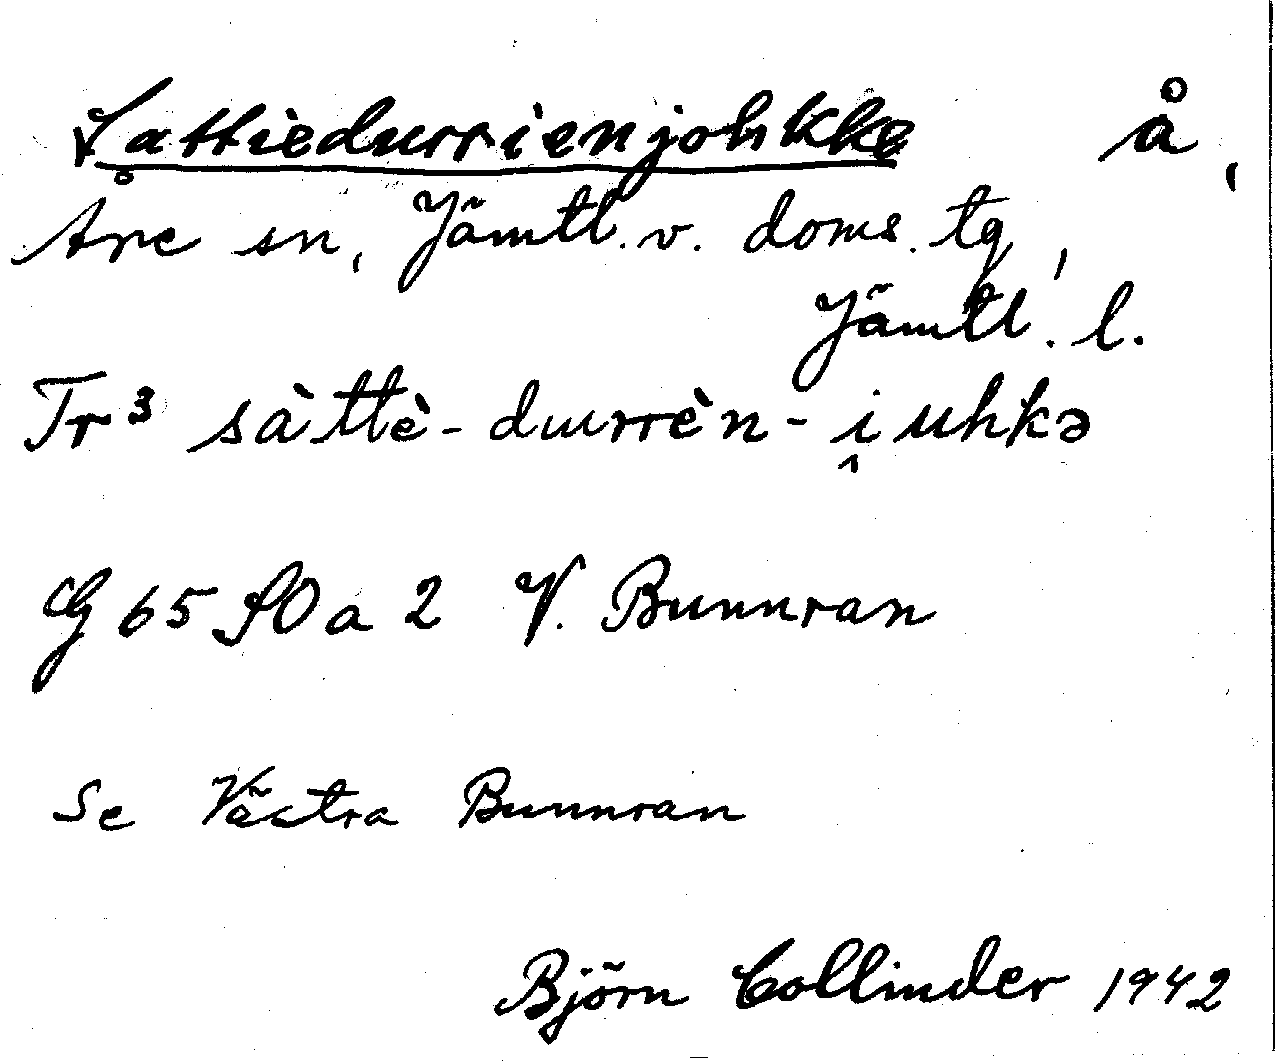 Sattiedurrienjohkke å,
Åre sn, Jämtl. v. doms. tg,
Jämtl. l.
Tr³ sàttè-duurrèn-i̭uhkə
G 65 SO a 2 V. Bunnran
Se Västra Bunnran
Björn Collinder 1942